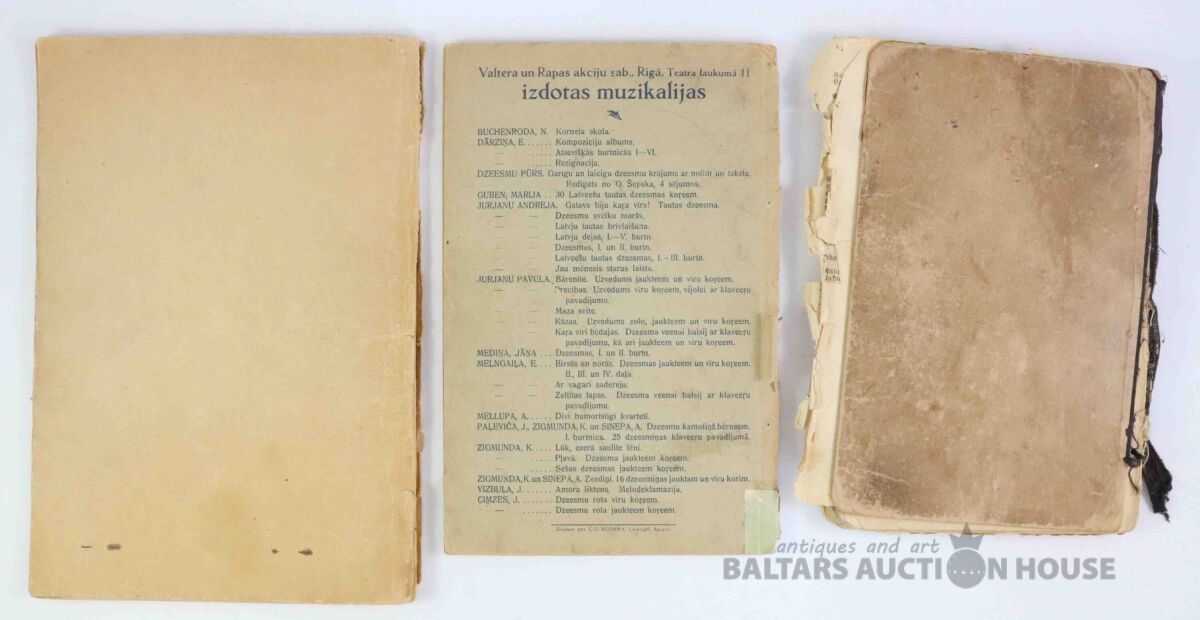 Valtera un Rapas akciju sab., Rīgā, Teatra laukumā 11
izdotas muzikalijas
BUCHENRODA, N. Korneta skola.
DĀRZIŅA, E. ...... Kompoziciju albums.
— ...... Atsevišķās burtnicās I—VI.
— ...... Rezignacija.
DZEESMU PŪRS. Garigu un laicigu dzeesmu krājums ar notim un tekstu.
Rediģets no O. Šepska, 4 sējumos.
GUBEN, MARIJA .. 30 Latveešu tautas dzeesmas koŗeem.
JURJANU ANDREJA. Gatavs biju kaŗa vīrs! Tautas dzeesma.
— — Dzeesmu svētku maršs.
— — Latvju tautas brīvlaišana.
— — Latvju dejas, I.—V. burtn.
— — Dzeesmas, I. un II. burtn.
— — Latveešu tautas dzeesmas, I.—III. burtn.
— — Jau mēnesis starus laista.
JURJANU PAVULA. Bārenite. Uzvedums jaukteem un vīru koŗeem.
— — Precibas. Uzvedums vīru koŗeem, vijolei ar klaveeŗu
pavadijumu.
— — Maza svite.
— — Kāzas. Uzvedums zolo, jaukteem un vīru koŗeem.
— — Kaŗa vīri bēdajas. Dzeesma veenai balsij ar klaveeŗu
pavadijumu, kā ari jaukteem un vīru koŗeem.
MEDIŅA, JĀŅA ... Dzeesmas, I. un II. burtn.
MELNGAIĻA, E. ... Birsēs un norās. Dzeesmas jaukteem un vīru koŗeem.
II., III. un IV. daļa.
— — Ar vagari sadereju.
— — Zeltitas lapas. Dzeesma veenai balsij ar klaveeŗu
pavadijumu.
MELLUPA, A. ..... Divi humoristigi kvarteti.
PAĻEVIČA, J., ZIGMUNDA, K. un SINEPA, A. Dzeesmu kamoliņš bērneem.
I. burtnica. 25 dzeesmiņas klaveeŗu pavadijumā.
ZIGMUNDA, K. .... Lūk, ezerā saulite lēni.
— ..... Pļavā. Dzeesma jaukteem koŗeem.
— ..... Sešas dzeesmas jaukteem koŗeem.
ZIGMUNDA, K. un SINEPA, A. Zeediņi. 16 dzeesmiņas jauktam un vīru korim.
VIZBUĻA, J. ....... Amora liktens. Melodeklamazija.
CIMZES, J. ....... Dzeesmu rota vīru koŗeem.
— ....... Dzeesmu rota jaukteem koŗeem.
C. G. RÖDERA, Leipcigā
antiques and art
BALTARS AUCTION HOUSE